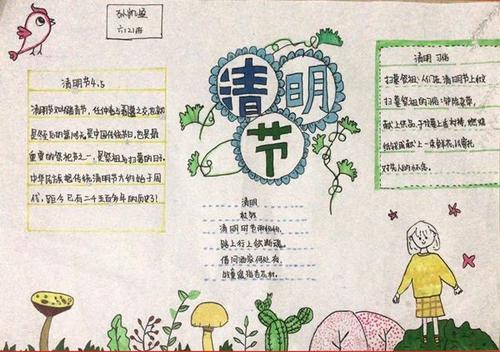 六.12班
清明节4.5
清明节又叫踏青节,在仲春与暮春之交,也就
是冬至后的第108天.是中国传统节日,也是最
重要的祭祀节之一,是祭祖与扫墓的日.
中华民族
传统清明节大约始于周
代,距今已有二千五百多年的历史!
清明
节
清明
杜牧
清明时节雨纷纷,
路上行人欲断魂。
借问酒家何处有,
牧童遥指杏花村。
清明 习俗
扫墓祭祖:人们在清明节上坟
扫墓祭祖的习俗:铲除杂草,
献上供品,于坟墓上
燃烧
纸钱或献上一束鲜花,以寄托
对先人的怀念。